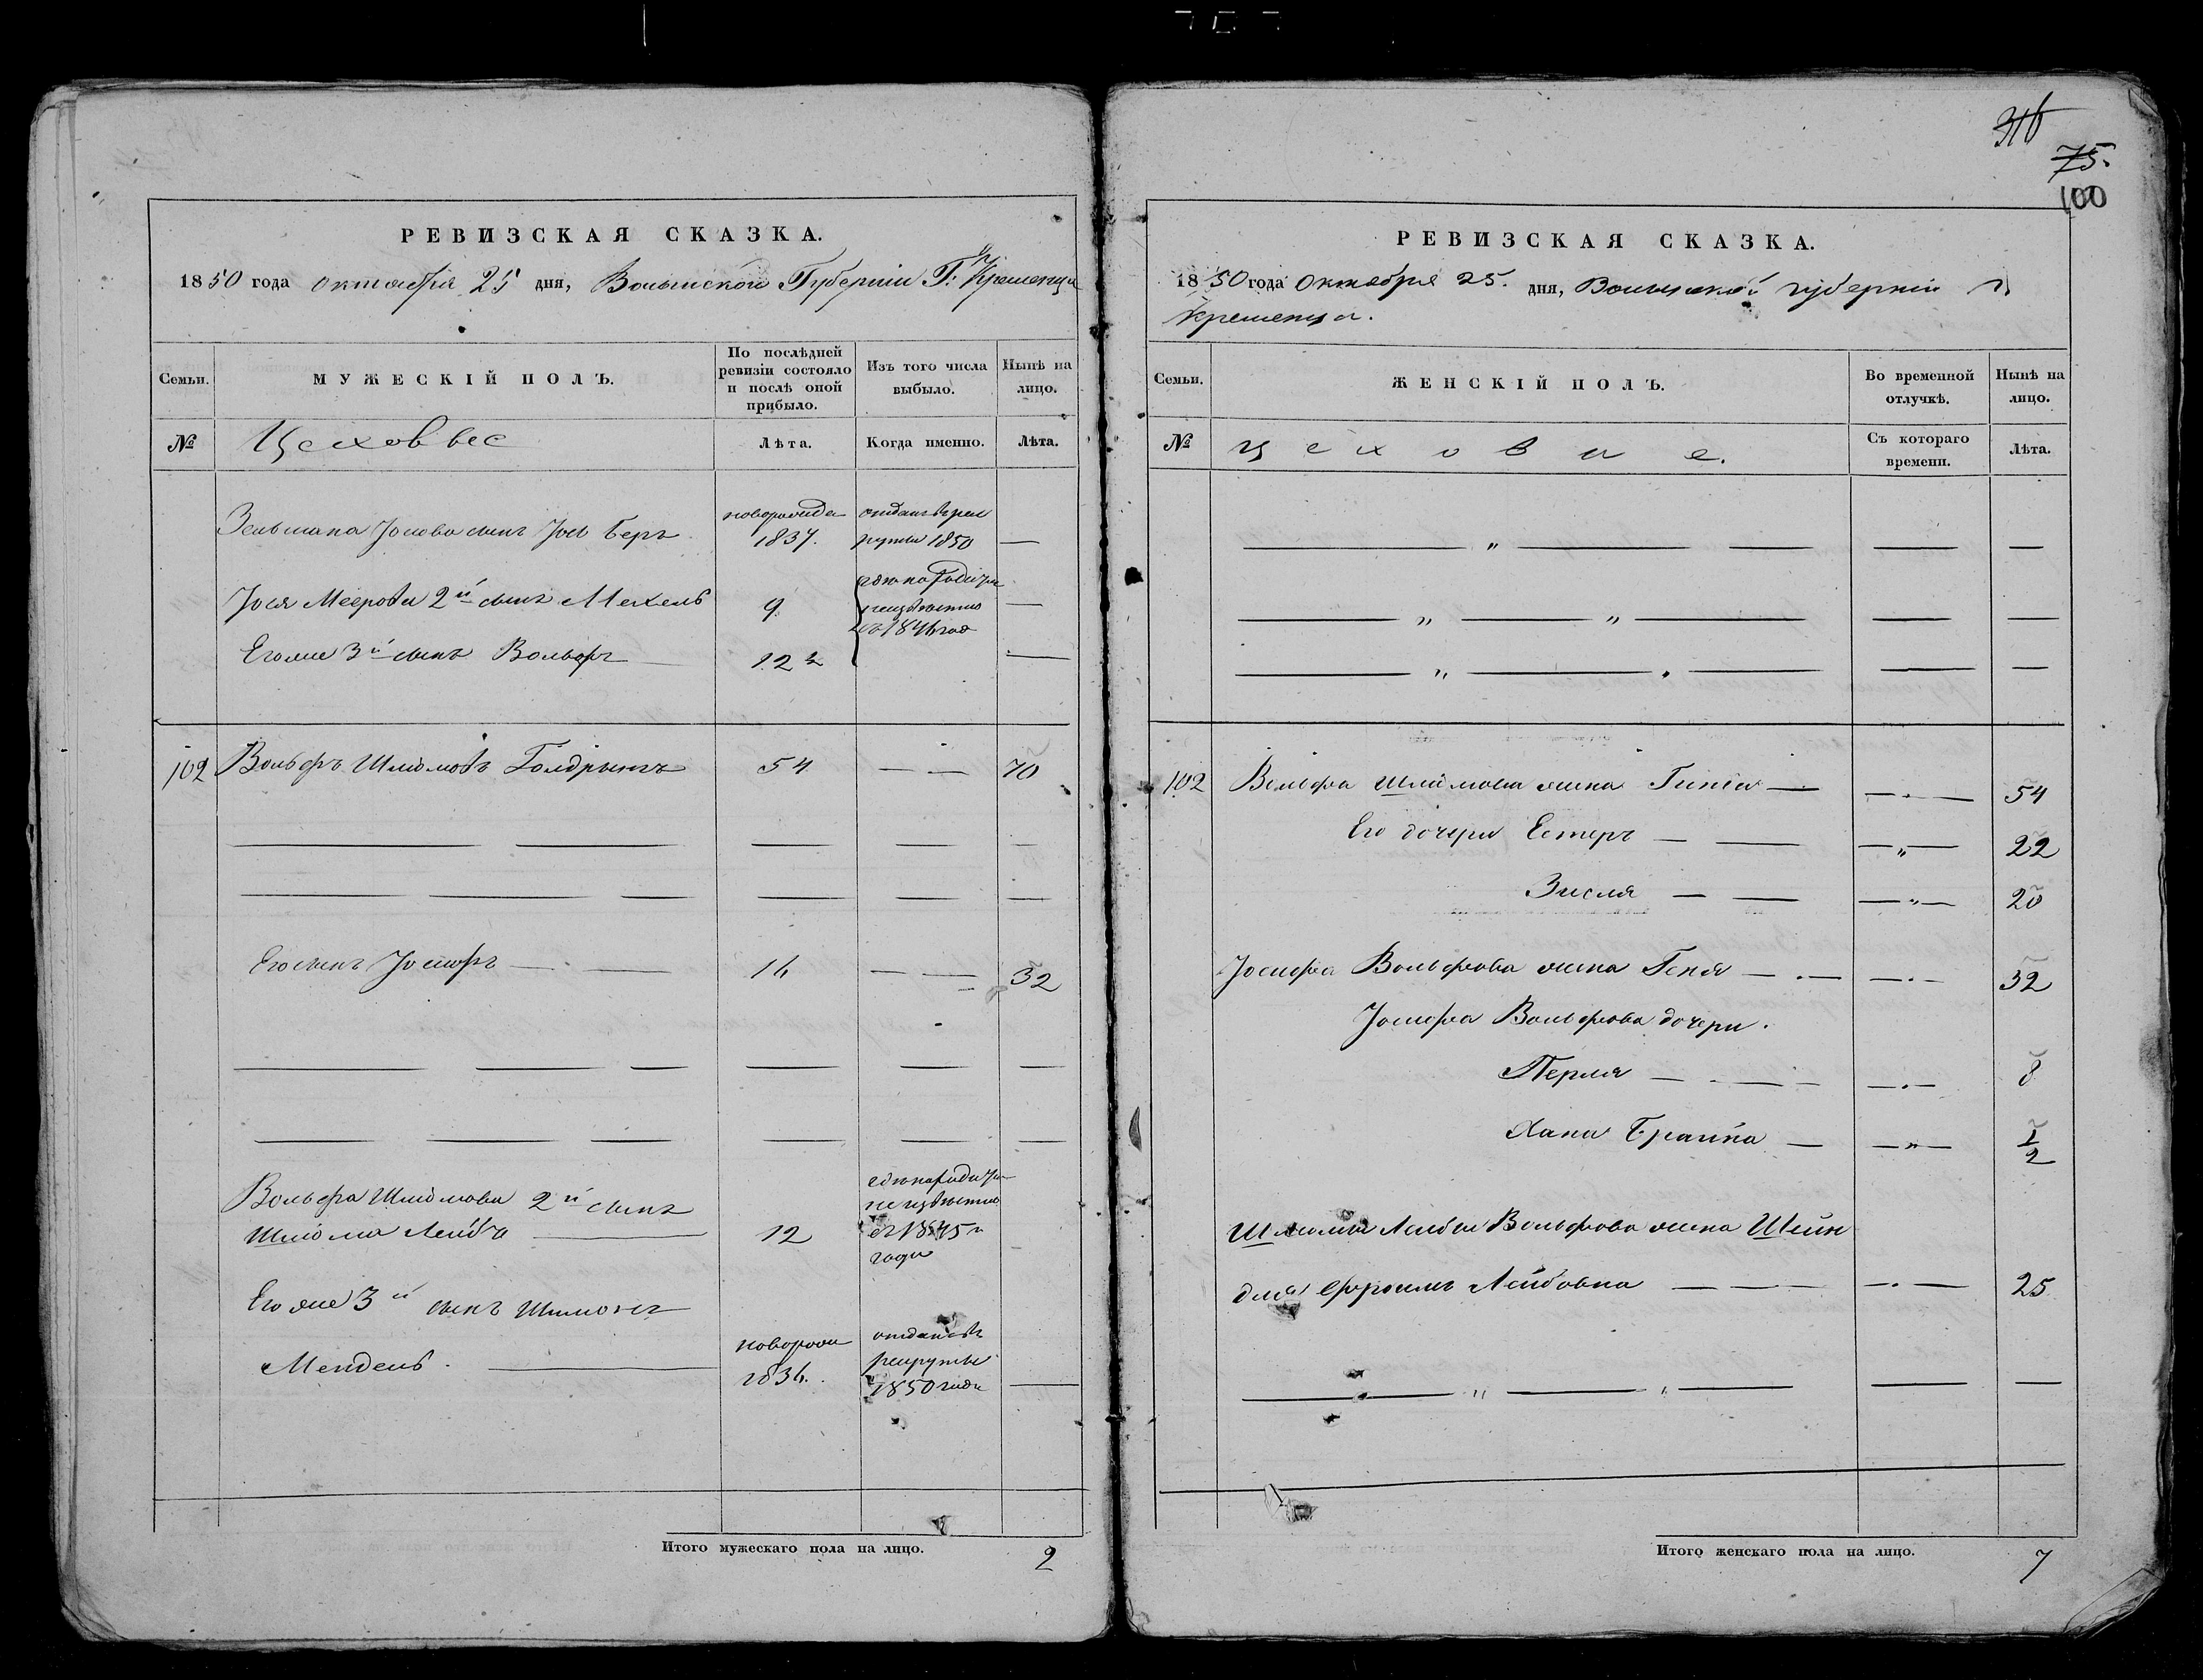 РЕВИЗСКАЯ СКАЗКА.
1850 года октября 25 дня, Волынской Губернии Г: Кременца
Семьи.
МУЖЕСКІЙ ПОЛЪ.
По послѣдней ревизіи состояло и послѣ оной прибыло.
Изъ того числа выбыло.
Нынѣ на лицо.
№
Цеховые
Лѣта.
Когда именно.
Лѣта.
Зельмана Іосіова сынъ Іось Беръ
новорожде 1837.
отданъ в рекруты 1850 —
Іося Меерова 2й сынъ Мехель
9
Его же 3й сынъ Вольфъ
1 2/2
неизвѣстно
съ 1846 год
102 Вольфъ Шліомовъ Голдрингъ 54 — — 70
Его сынъ Іосифъ — — 16 — — 32
Вольфа Шліомова 2й сынъ
Шліома Лейба — 12
неизвѣстно
съ 1845 года
Его же 3й сынъ Шимонъ
Мендель. —
новорож 1836.
отданъ въ рекруты 1850 года —
Итого мужескаго пола на лицо. 2
316
75.
100
РЕВИЗСКАЯ СКАЗКА.
1850 года Октября 25. дня, Волынской губерніи г.
Кременца.
Семьи.
ЖЕНСКІЙ ПОЛЪ.
Во временной отлучкѣ.
Нынѣ на лицо.
№
Цеховые.
Съ котораго времени.
Лѣта.
102 Вольфа Шліомова жена Гитля — — 54
Его дочери Естеръ — — 22
Зисля — — 20
Іосифа Вольфова жена Геня — — 32
Іосифа Вольфова дочери.
Перля — — 8
Хана Брайна — — 1/2
Шліомы Лейбы Вольфова жена Шейн
для Ефроимъ Лейбовна — — 25
Итого женскаго пола на лицо. 7